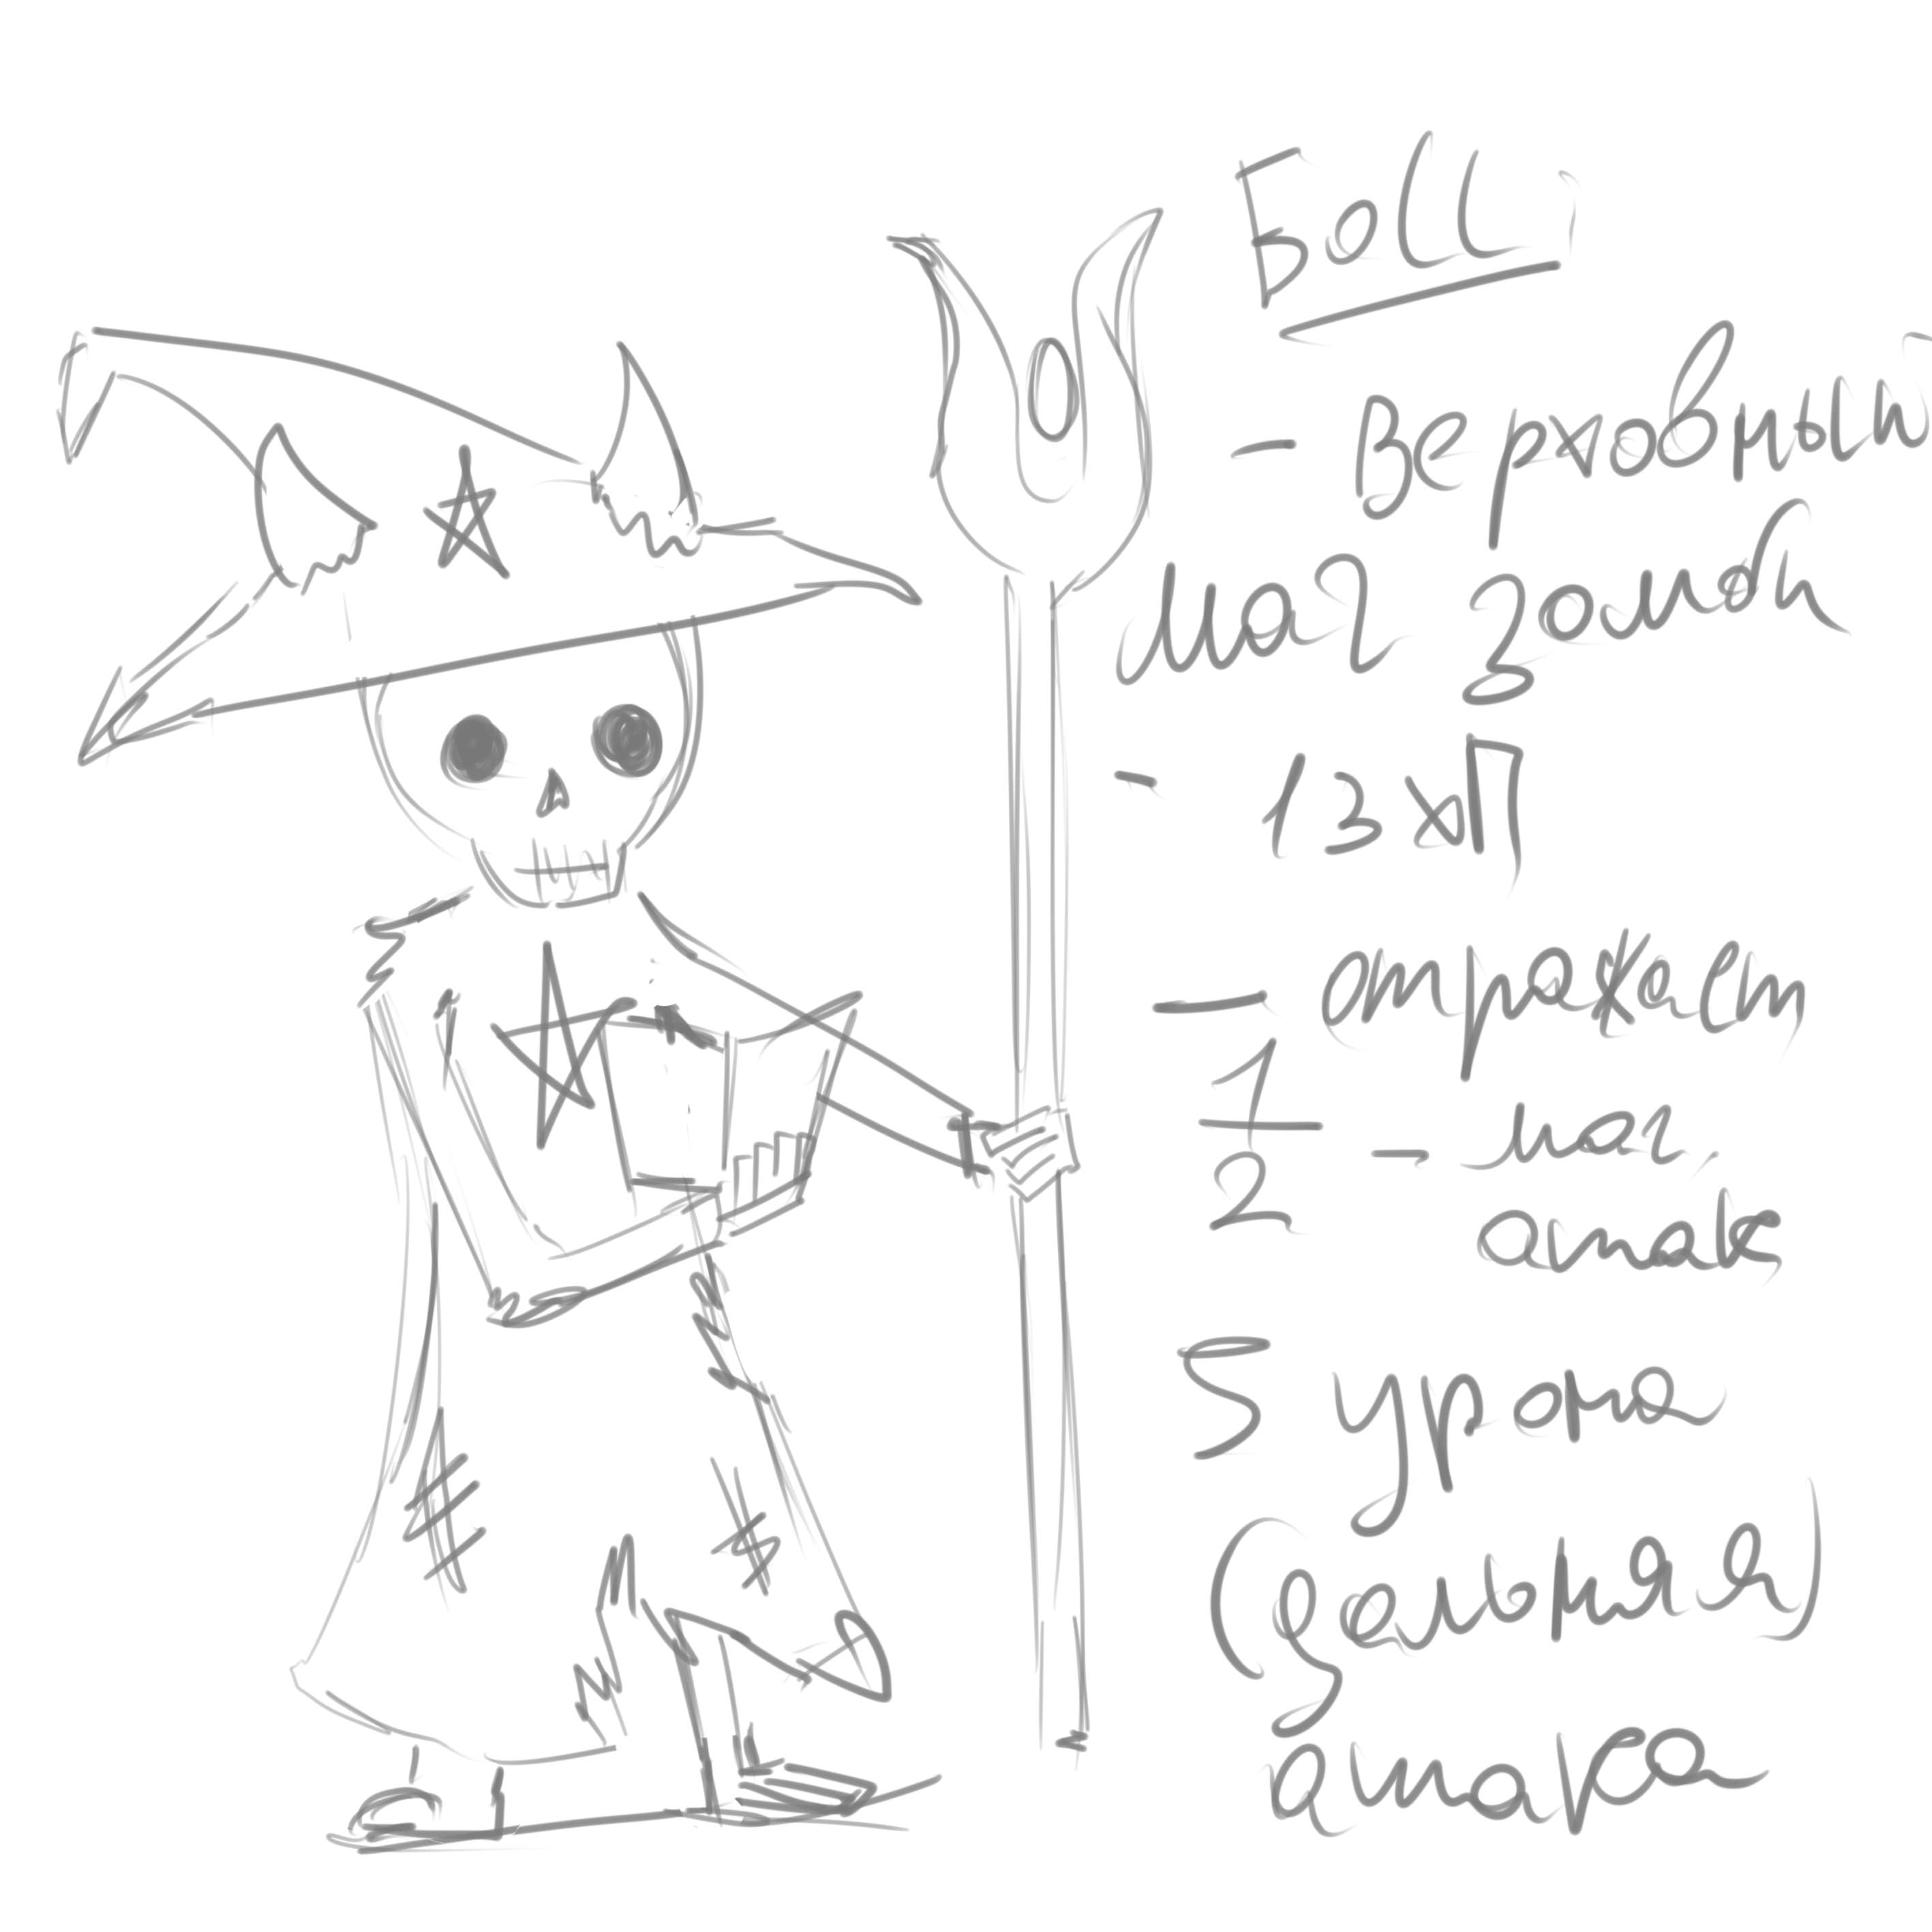 Босс
- Верховный
маг зомби
- 13 хП
- отражает
1/2 - маг.
атак
5 урона
(дальняя)
атака